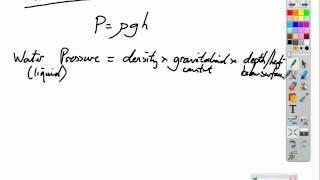 P = ρgh
Water Pressure = density × gravitational × depth/
(liquid) constant below surface